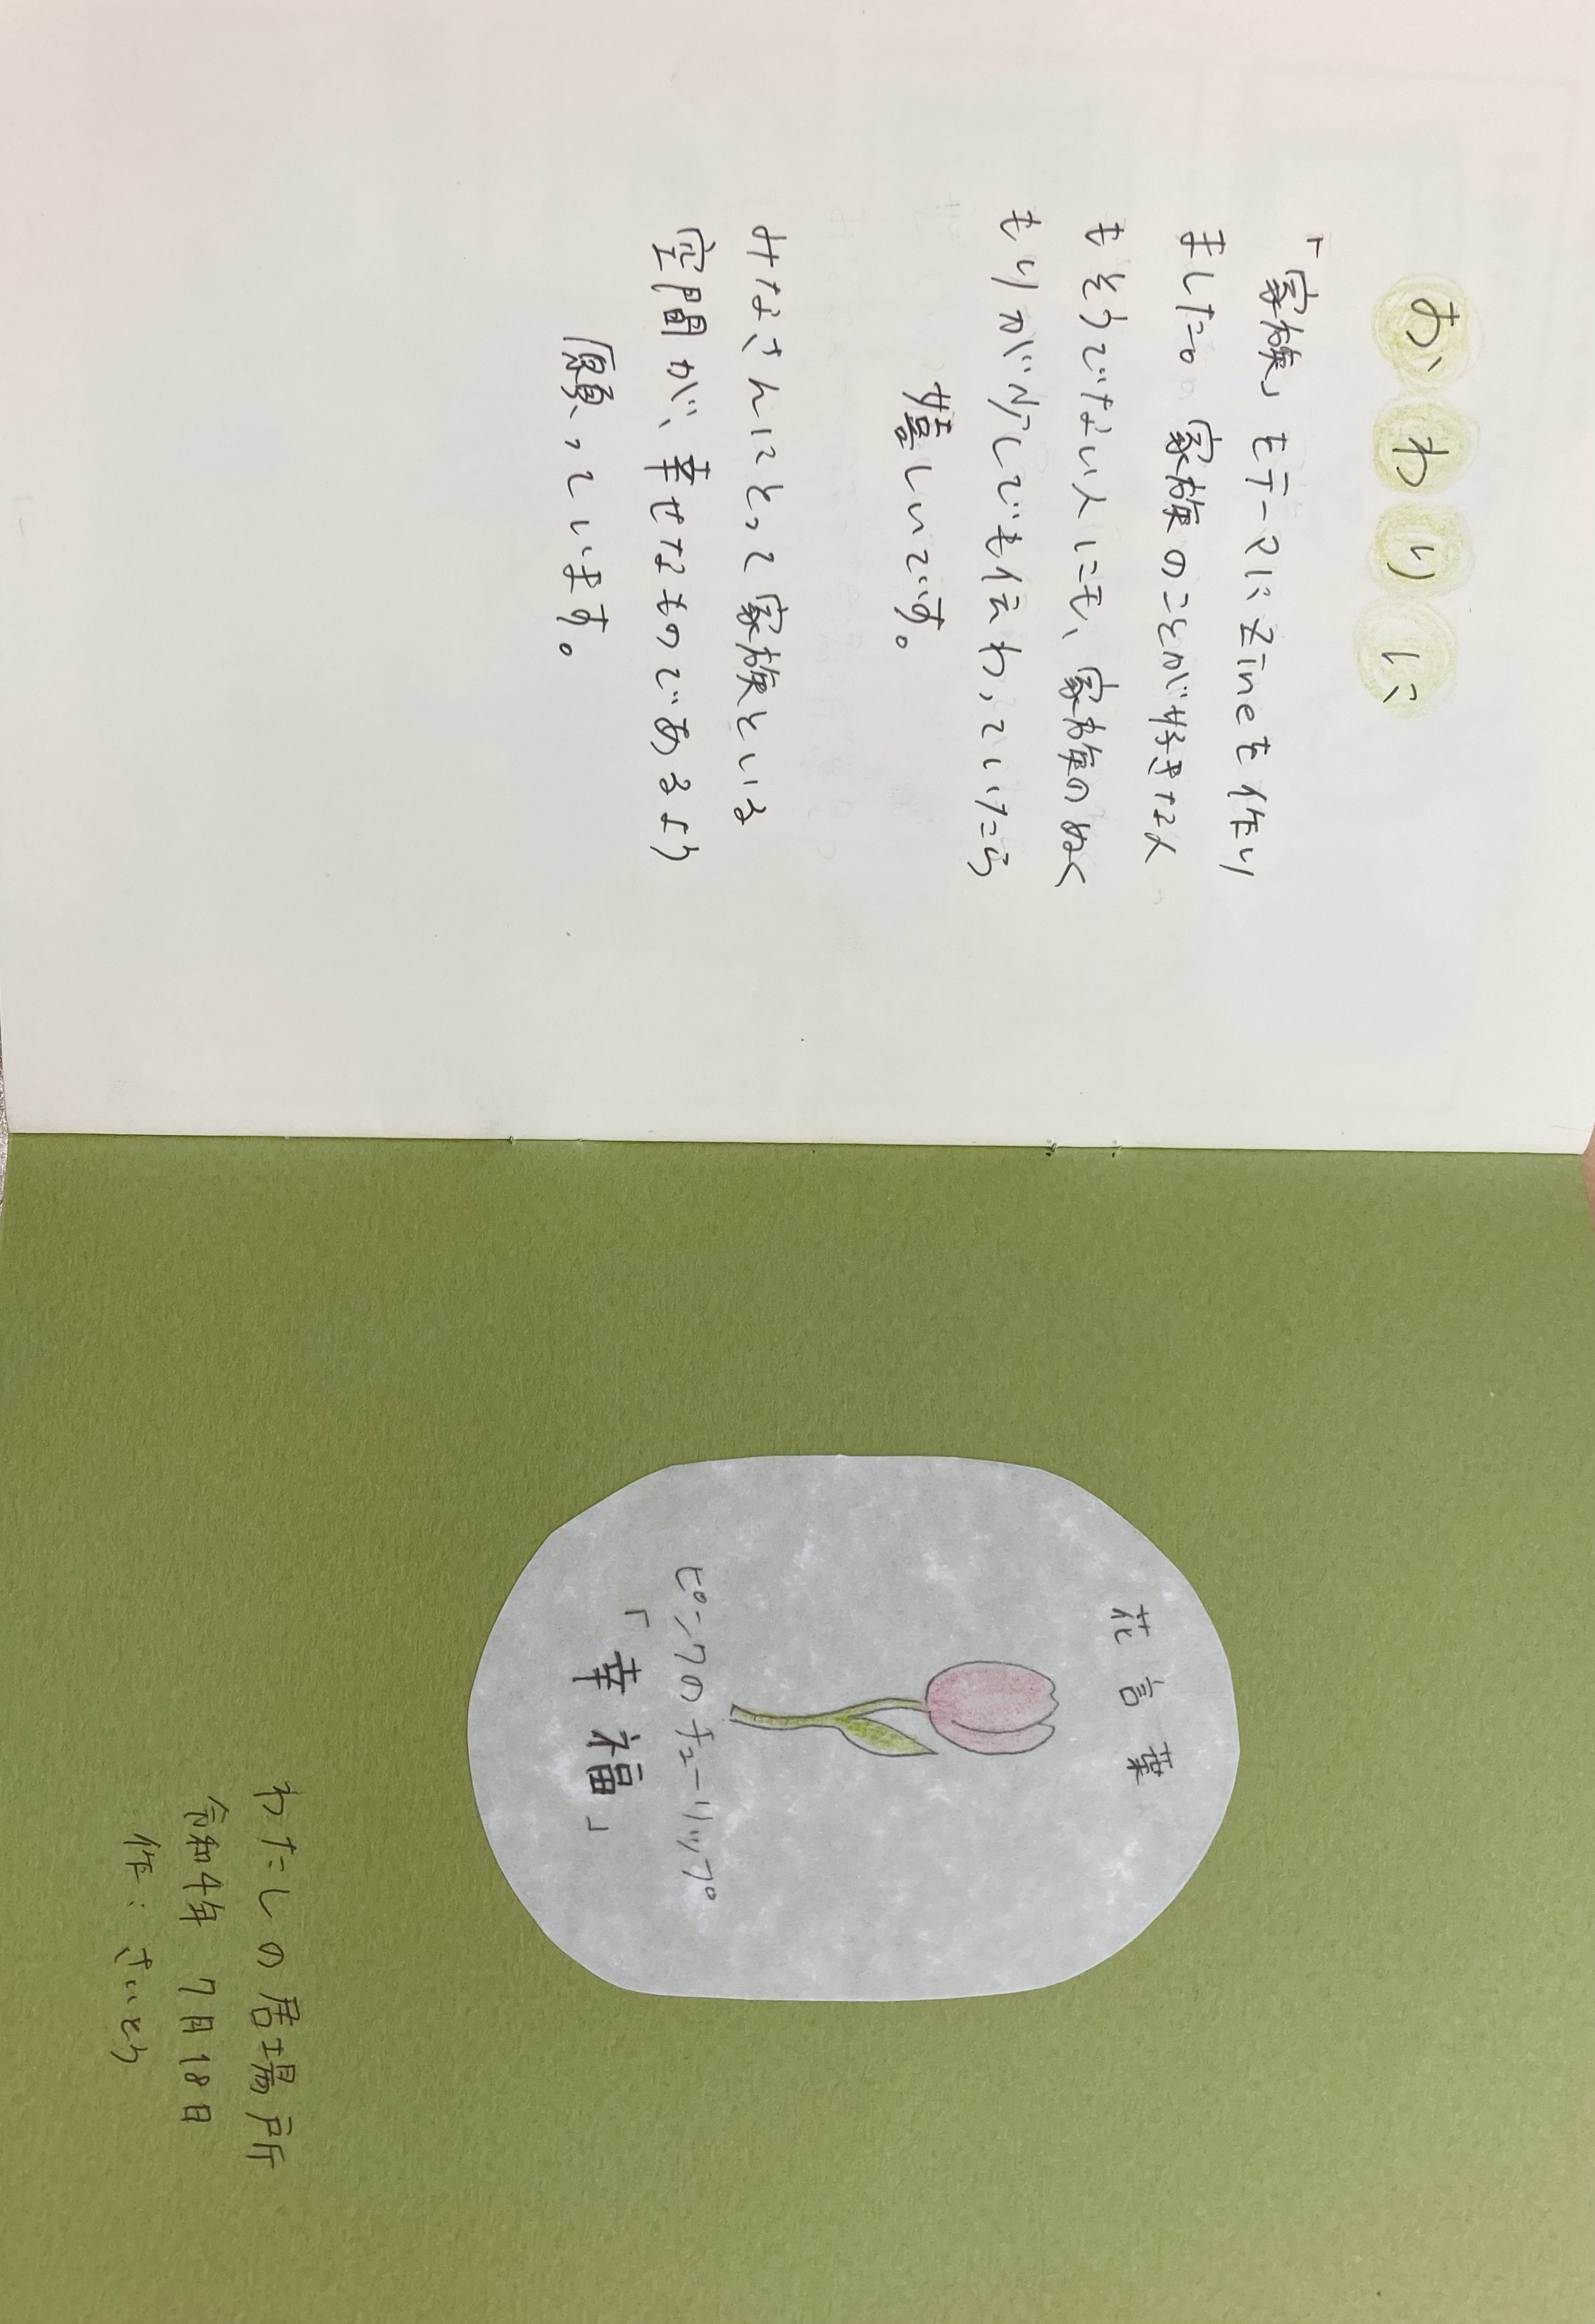 おわりに
「家族」をテーマにZineを作り
ました。家族のことが好きな人
もそうでない人にも、家族のぬく
もりが少しでも伝わっていたら
嬉しいです。
みなさんにとって家族という
空間が、幸せなものであるよう
願っています。
花言葉
ピンクのチューリップ
「幸福」
わたしの居場所
令和4年 7月18日
作：さいとう